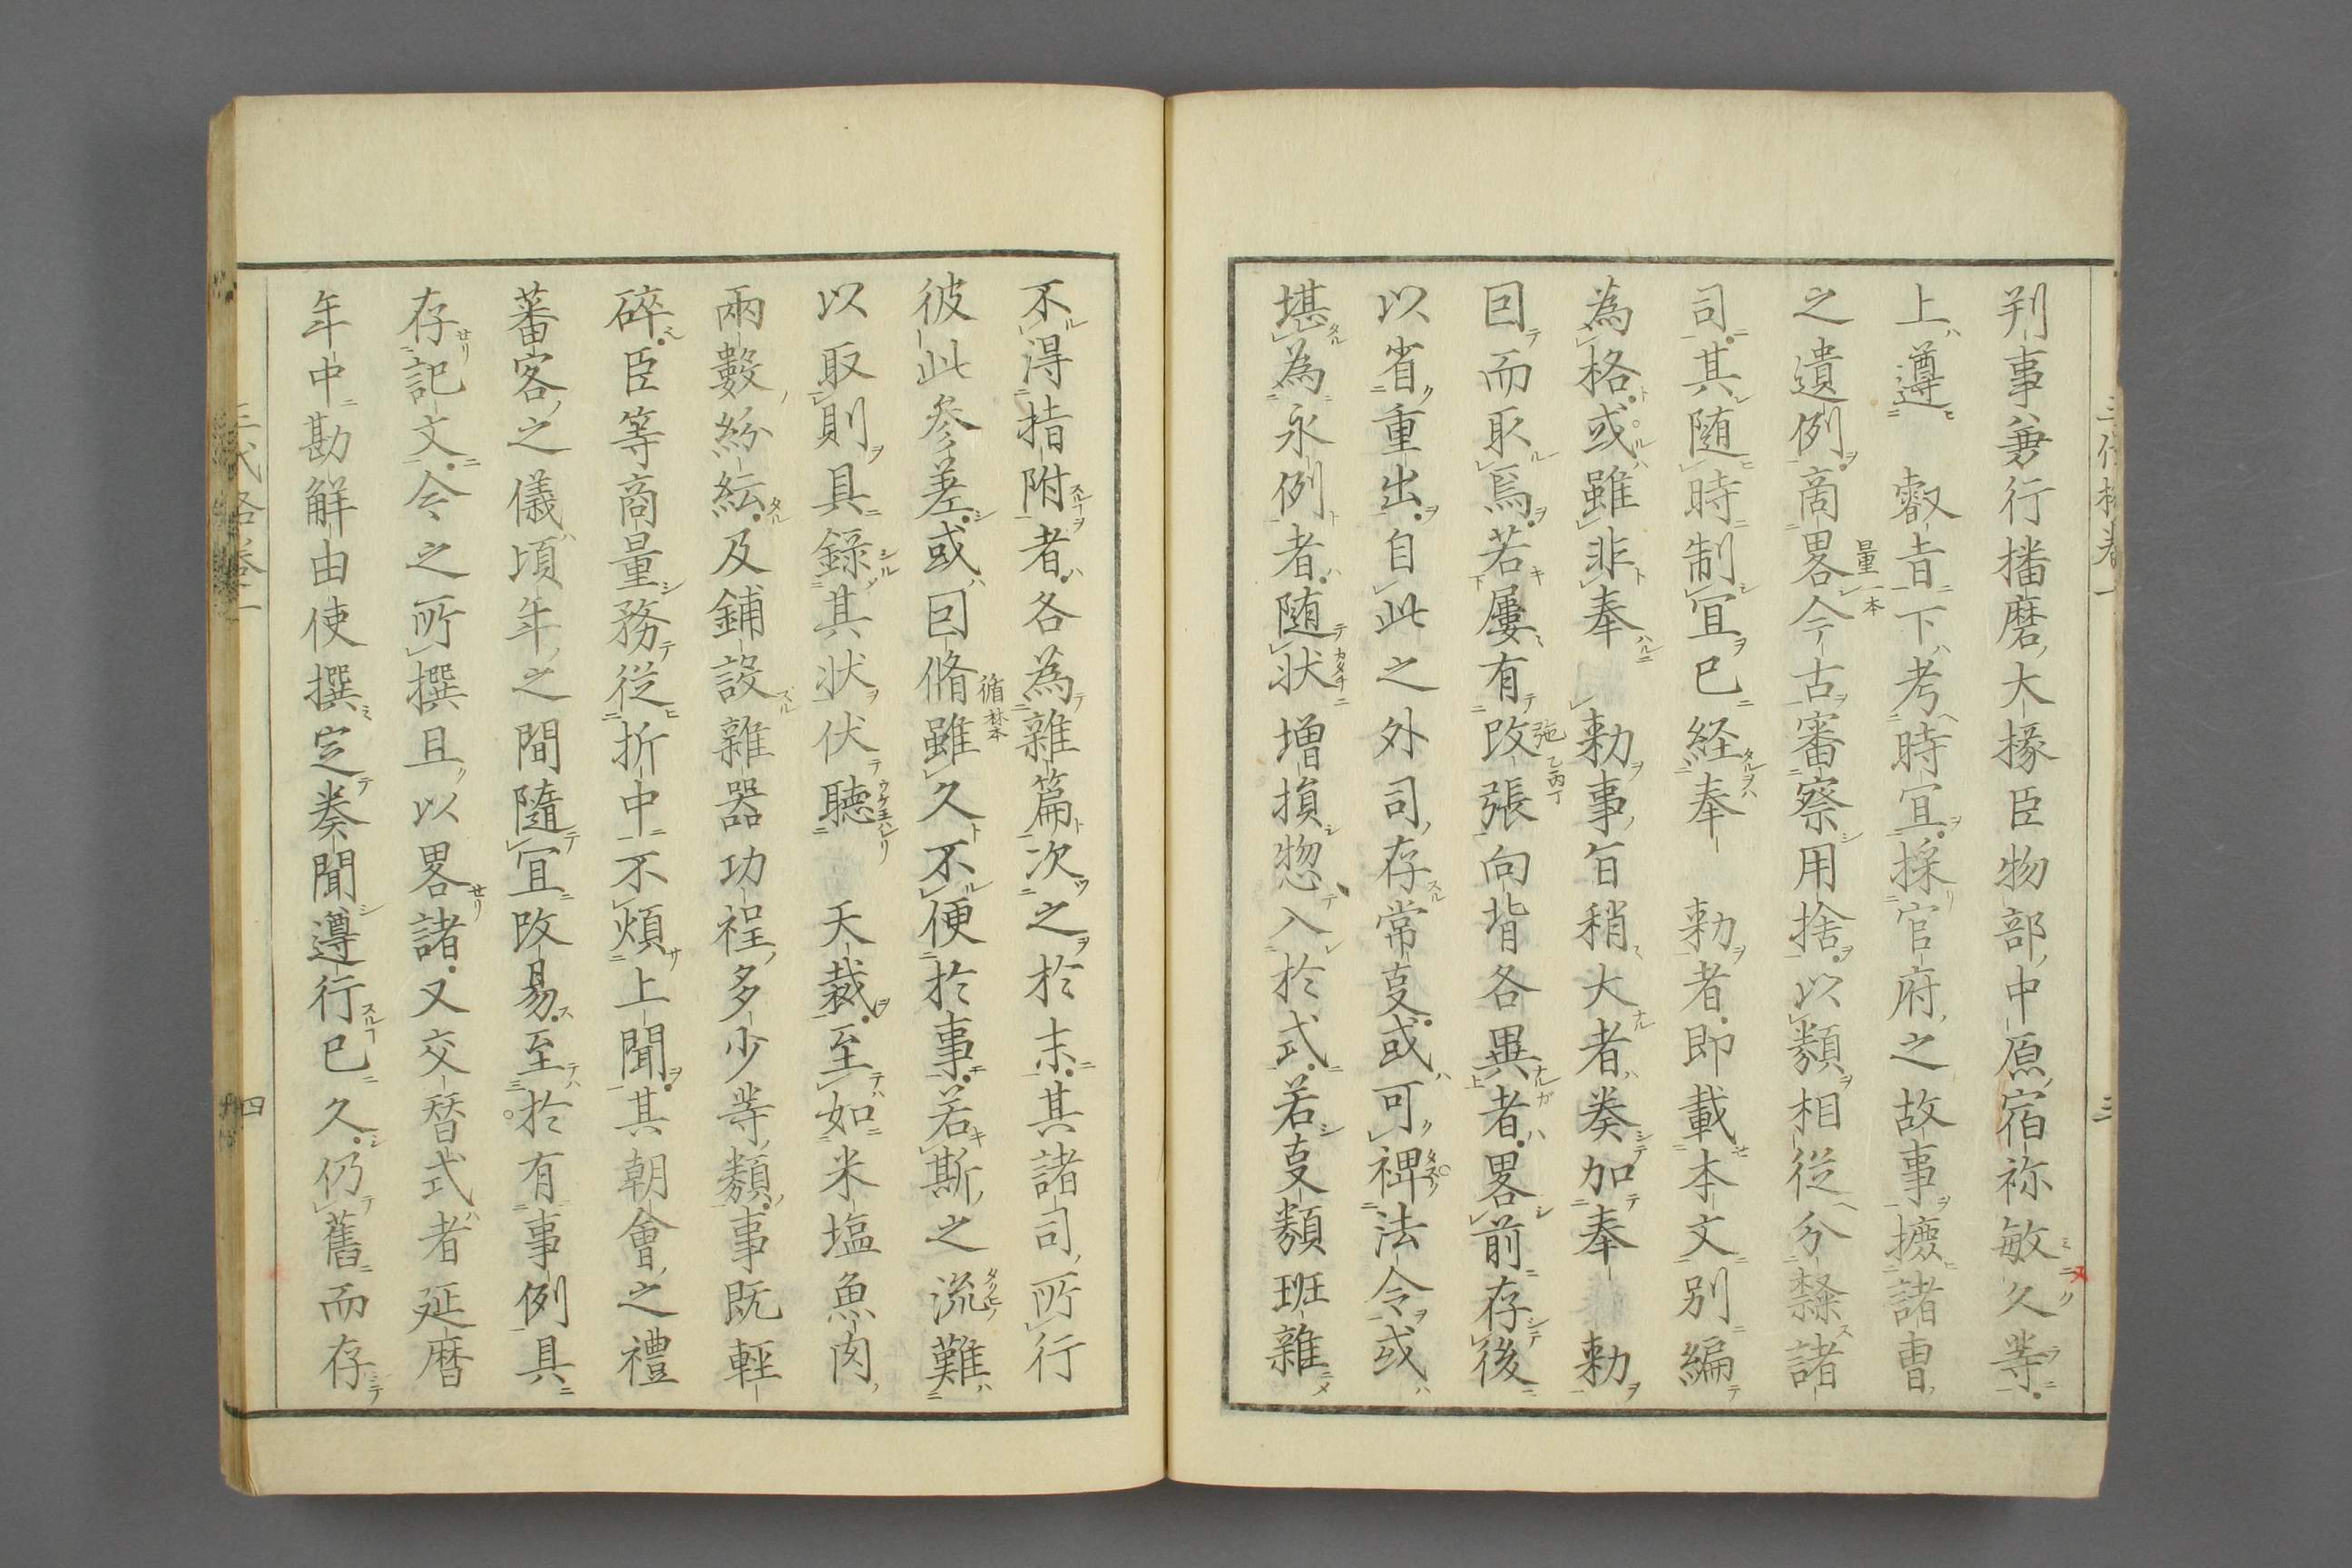 判事兼行播磨大掾臣物部中原宿祢敏久等
上遵　叡旨下考時宜採官府之故事摭諸曹
之遺例商畧今古審察用捨以類相従分隸諸
量一本
司其随時制宜已経奉　勅者即載本文別編
為格或雖非奉　勅事旨稍大者奏加奉　勅
因而取焉若屢有改張向背各異者畧前存後
以省重出自此之外司存常㕝或可裨法令或
堪為永例者随状増損惣入於式若㕝類班雑
不得指附者各為雜篇次之於末其諸司所行
彼此参差或因脩雖久不便於事若斯之流難
循林本
以取則具錄其状伏聴　天裁至如米塩魚肉
兩數紛紜及鋪設雜器功程多少等類事既輕
碎臣等商量務従折中不煩上聞其朝會之禮
蕃客之儀頃年之間隨宜改易至於有事例具
存記文今之所撰且以畧諸又交替式者延暦
年中勘解由使撰定奏聞遵行已久仍舊而存
三代格巻一
四
三